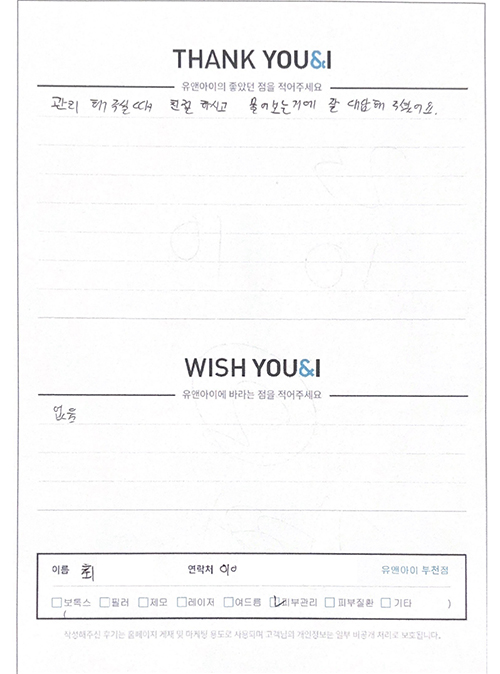 THANK YOU&I
유앤아이의 좋았던 점을 적어주세요
관리 해주실때 친절 하시고 물어보는거에 잘 대답해 주셨어요.
WISH YOU&I
유앤아이에 바라는 점을 적어주세요
없음
이름 최 연락처 010 유앤아이 부전점
보톡스 필러 제모 레이저 여드름 피부관리 피부질환 기타 )
작성해주신 후기는 홈페이지 게재 및 마케팅 용도로 사용되며 고객님의 개인정보는 일부 비공개 처리로 보호됩니다.